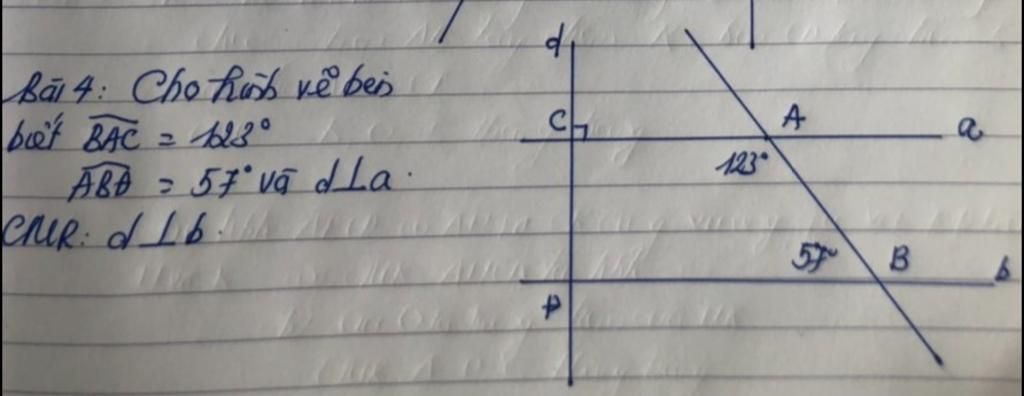 Bài 4: Cho hình vẽ bên
biết BAC = 123°
ABD = 57° và d⊥a.
CMR: d⊥b.
d
C
A
a
123°
57°
B
b
D